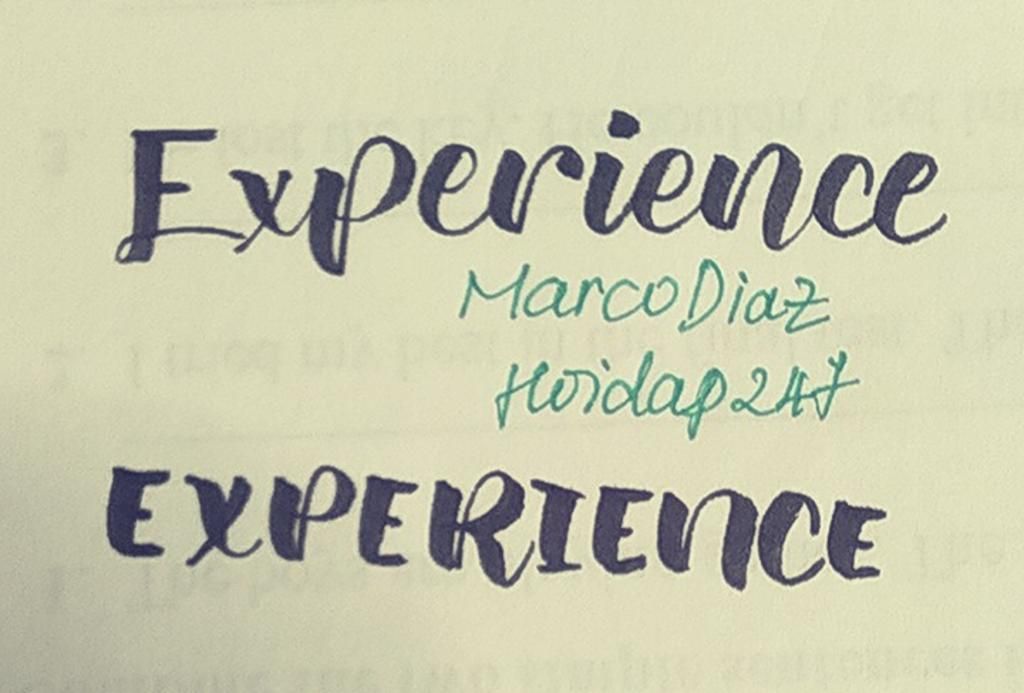 Experience
MarcoDiaz
Hoidap247
EXPERIENCE